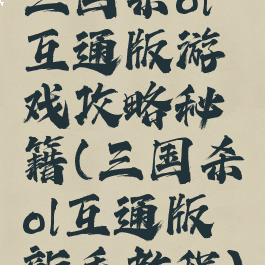 三国杀ol
互通版游
戏攻略秘
籍(三国杀
ol互通版
新手教程)